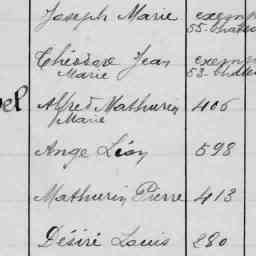 Joseph Marie exem
55
Théodore Jean exem
Marie 53
el Alfred Mathurin 406
Marie
Ange Léon 598
Mathurin Pierre 413
Désiré Louis 280